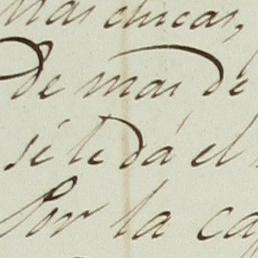 mas chicas,
De mas de
sé le dá el
Por la ca